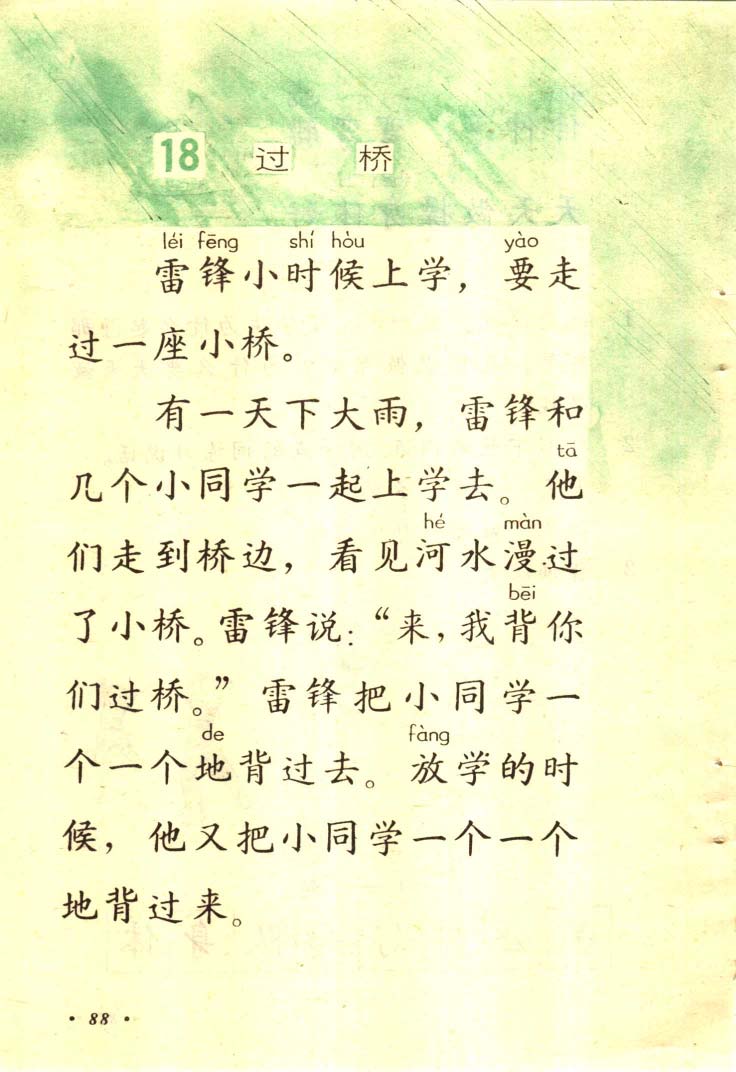 18 过 桥
léi fēng shí hòu yào
雷锋小时候上学，要走
过一座小桥。
有一天下大雨，雷锋和
tā
几个小同学一起上学去。他
hé màn
们走到桥边，看见河水漫过
bēi
了小桥。雷锋说：“来，我背你
们过桥。”雷锋把小同学一
de fàng
个一个地背过去。放学的时
候，他又把小同学一个一个
地背过来。
· 88 ·